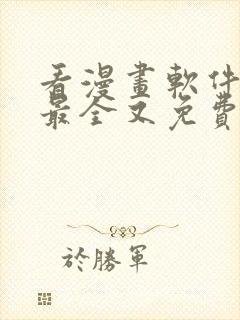 看漫畫軟件
最全又免費
於勝軍